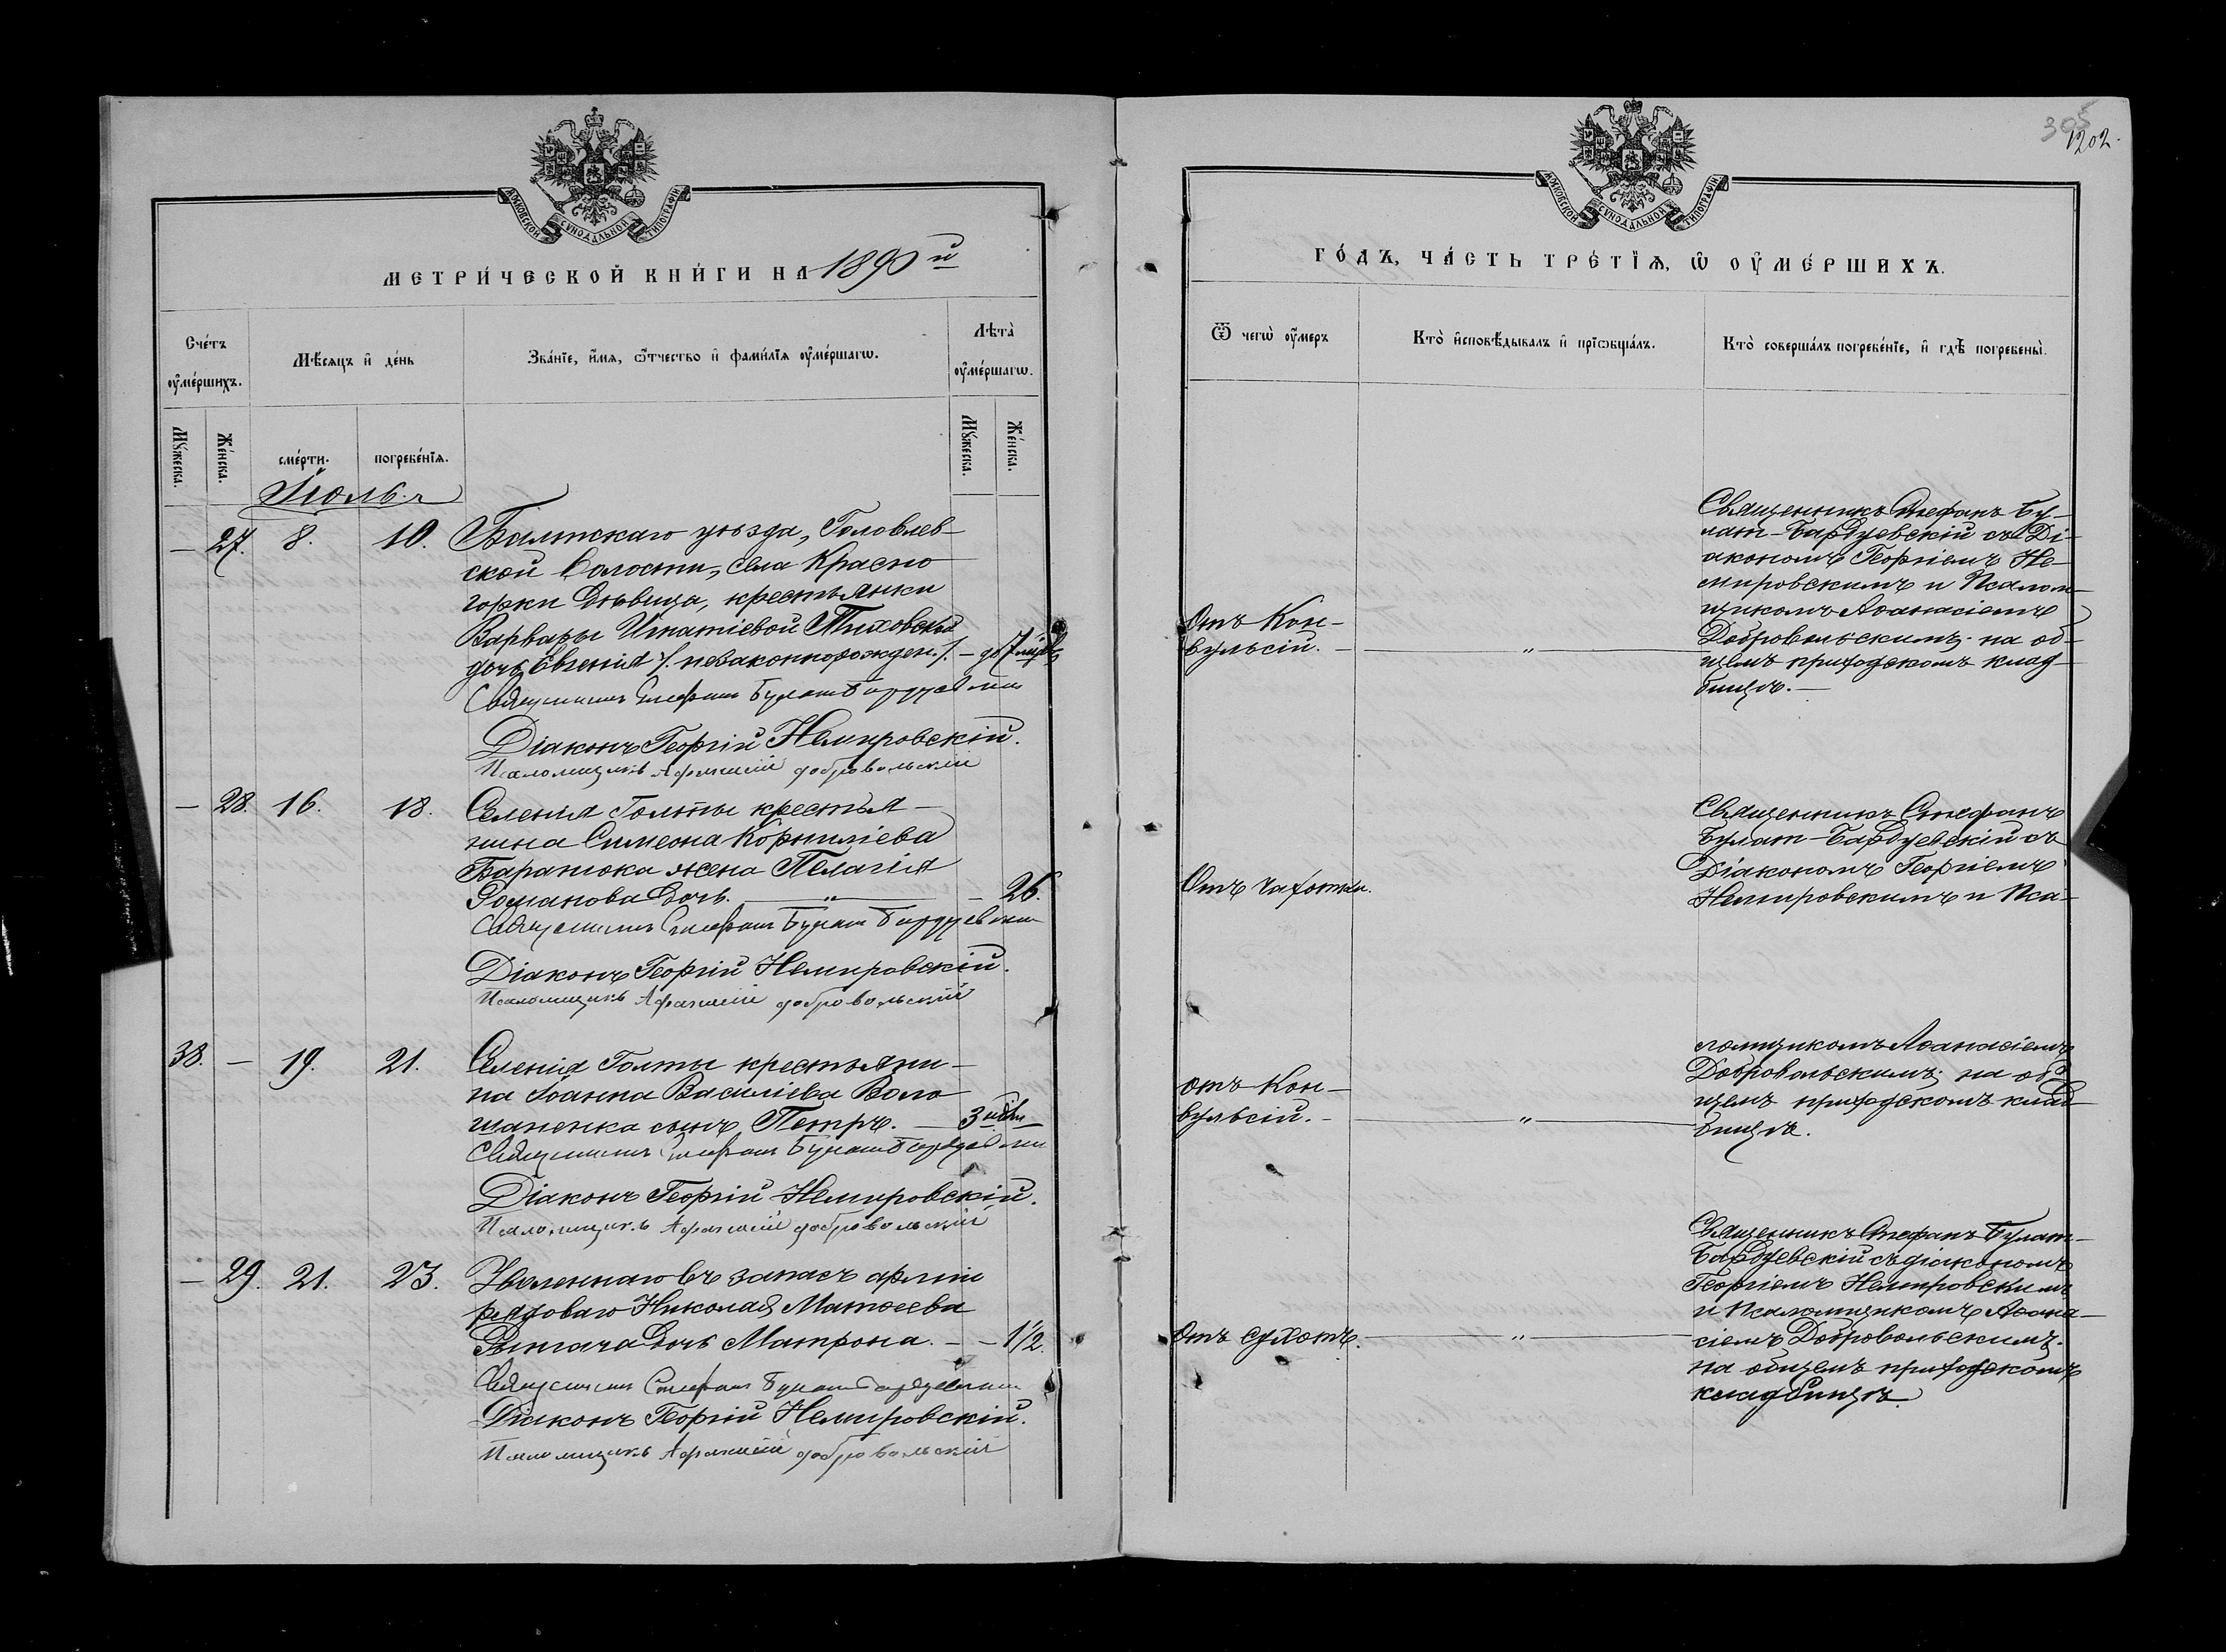 МОСКОВСКОЙ СѴНОДАЛЬНОЙ ТИПОГРАФІИ
МЕТРИ́ЧЕСКОЙ КНИ́ГИ НА 1890й
Сче́тъ оу҆ме́ршихъ.
Мѣ́сяцъ и҆ де́нь
Зва́нїе, и҆́мя, ѻ҆́тчество и҆ фами́лїя оу҆ме́ршагѡ.
Лѣта̀ оу҆ме́ршагѡ.
Мꙋ́жеска.
Же́нска.
сме́рти.
погребе́нїѧ.
Мꙋ́жеска.
Же́нска.
Іюль.
— 27. 8. 10. Балтскаго уѣзда, Головлев-
ской волости, села Красно
горки дѣвица, крестьянки
Варвары Игнатіевой Тиховской
дочь Евгенія /. незаконнорожден./. —
Священникъ Стефанъ Булатъ Бардуевскій
Діаконъ Георгій Немировскій.
Псаломщикъ Афанасій Добровольскій
— 28. 16. 18. Селенія Голты крестья-
нина Симеона Корниліева
Баранюка жена Пелагія
Романова дочь. — „ — — 26.
Священникъ Стефанъ Булатъ Бардуевскій
Діаконъ Георгій Немировскій.
Псаломщикъ Афанасій Добровольскій
38. — 19. 21. Селенія Голты крестьяни-
на Іоанна Василіева Воло
шаненка сынъ Петръ. — 3
Священникъ Стефанъ Булатъ Бардуевскій
Діаконъ Георгій Немировскій.
Псаломщикъ Афанасій Добровольскій
— 29. 21. 23. Уволеннаго въ запасъ арміи
рядоваго Николая Матѳеева
дочь Матрона. — — 1½.
Священникъ Стефанъ Булатъ Бардуевскій
Діаконъ Георгій Немировскій.
Псаломщикъ Афанасій Добровольскій
305
1202.
МОСКОВСКОЙ СѴНОДАЛЬНОЙ ТИПОГРАФІИ
ГО́ДЪ, ЧА́СТЬ ТРЕ́ТЇѦ, Ѡ҆ ОУ҆МЕ́РШИХЪ.
Ѿ чегѡ̀ оу҆́меръ
Кто̀ и҆сповѣ́дывалъ и҆ прїѡбща́лъ.
Кто̀ соверша́лъ погребе́нїе, и҆ гдѣ̀ погребены̀.
Отъ Кон-
вульсій. — „ —
Священникъ Стефанъ Бу-
латъ-Бардуевскій съ Ді-
акономъ Георгіемъ Не-
мировскимъ и Псалом-
щикомъ Аѳанасіемъ
Добровольскимъ; на об-
щемъ приходскомъ клад-
бищѣ. —
Отъ чахотки.
Священникъ Стефанъ
Булатъ-Бардуевскій съ
Діакономъ Георгіемъ
Немировскимъ и Пса-
отъ Кон-
вульсій. — „ —
ломщикомъ Аѳанасіемъ
Добровольскимъ; на об-
щемъ приходскомъ клад
бищѣ.
Отъ сухотъ. — „ —
Священникъ Стефанъ Булатъ-
Бардуевскій съ діакономъ
Георгіемъ Немировскимъ
и Псаломщикомъ Аѳана-
сіемъ Добровольскимъ.
на общемъ приходскомъ
кладбищѣ.